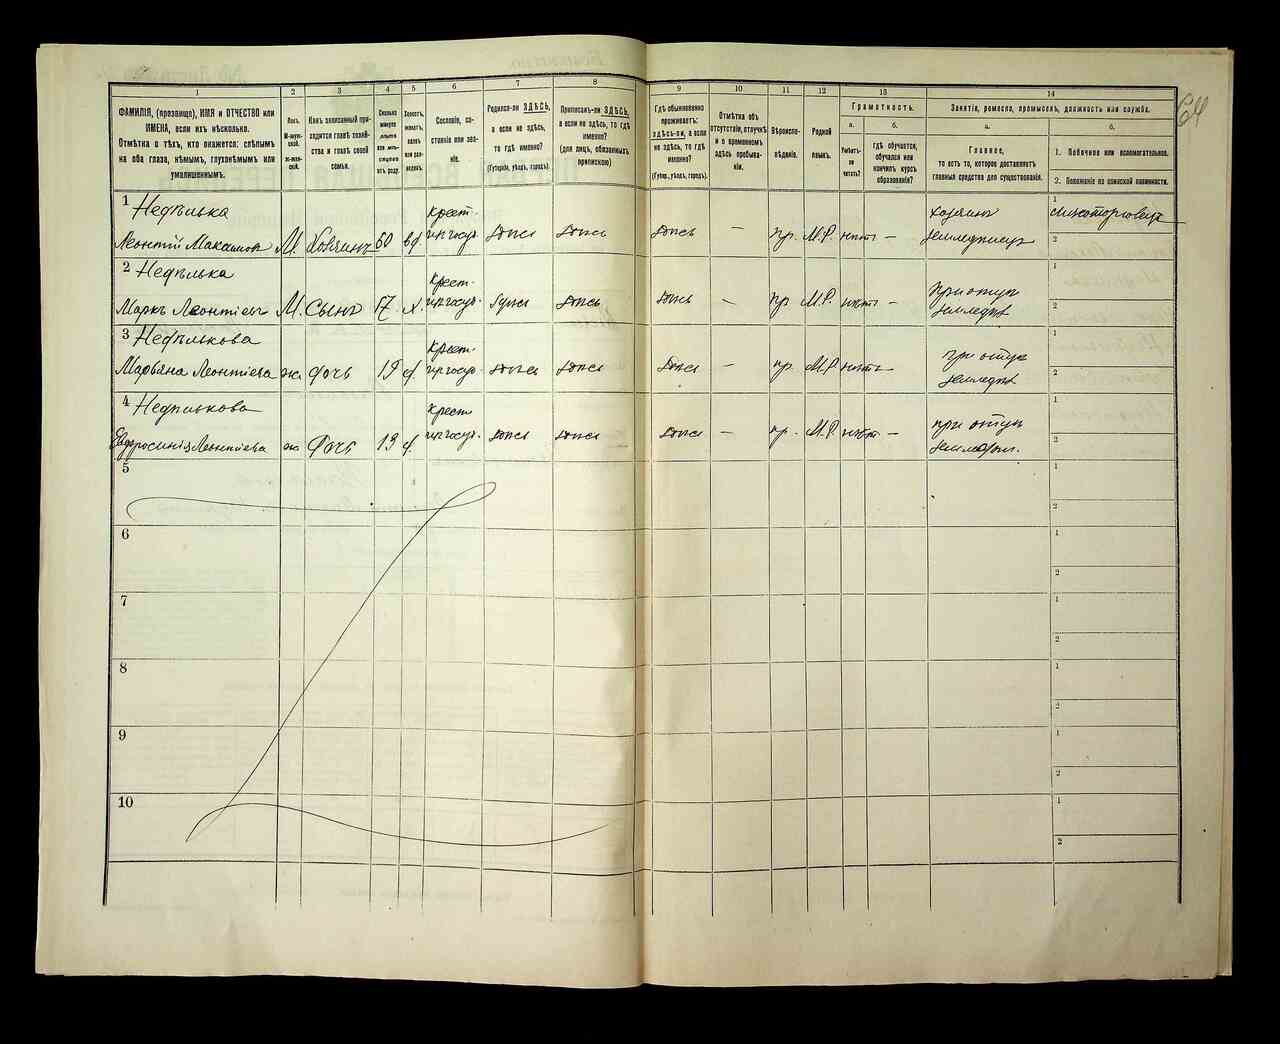 64
1
2
3
4
5
6
7
8
9
10
11
12
13
14
ФАМИЛІЯ, (прозвище), ИМЯ и ОТЧЕСТВО или
ИМЕНА, если ихъ нѣсколько.
Отмѣтка о тѣхъ, кто окажется: слѣпымъ
на оба глаза, нѣмымъ, глухонѣмымъ или
умалишеннымъ.
Полъ.
М-муж-
ской.
Ж-жен-
скій.
Какъ записанный при-
ходится главѣ хозяй-
ства и главѣ своей
семьи.
Сколько
минуло
лѣтъ
или мѣся-
цевъ
отъ роду.
Холостъ,
женатъ,
вдовъ
или раз-
веденъ.
Сословіе, со-
стояніе или зва-
ніе.
Родился-ли ЗДѢСЬ,
а если не здѣсь,
то гдѣ именно?
(Губернія, уѣздъ, городъ).
Приписанъ-ли ЗДѢСЬ,
а если не здѣсь, то гдѣ
именно?
(для лицъ, обязанныхъ
припискою)
Гдѣ обыкновенно
проживаетъ:
здѣсь-ли, а если
не здѣсь, то гдѣ
именно?
(Губер., уѣздъ, городъ).
Отмѣтка объ
отсутствіи, отлучкѣ
и о временномъ
здѣсь пребыва-
ніи.
Вѣроиспо-
вѣданіе.
Родной
языкъ.
Грамотность.
а.
б.
Умѣетъ-
ли
читать?
Гдѣ обучается,
обучался или
кончилъ курсъ
образованія?
Занятія, ремесло, промыселъ, должность или служба.
а.
б.
Главное,
то есть то, которое доставляетъ
главныя средства для существованія.
1. Побочное или вспомогательное.
2. Положеніе по воинской повинности.
1 Недѣлька Крест. хозяинъ 1
Леонтій Максимов М. Хозяинъ 60 вд. здѣсь здѣсь здѣсь — пр. М.Р. нѣтъ — земледѣлецъ 2
2 Недѣлька Крест. 1
Маркъ Леонтіевъ М. Сынъ 17 х. здѣсь здѣсь здѣсь — пр М.Р. нѣтъ — земледѣл 2
3 Недѣлькова Крест. при отцѣ 1
Марьяна Леонтіева ж. Дочь 19 здѣсь здѣсь здѣсь — пр. М.Р. нѣтъ — земледѣл 2
4 Недѣлькова Крест. при отцѣ 1
Евфросинія Леонтіева ж. Дочь 13 здѣсь здѣсь здѣсь — пр. М.Р. нѣтъ — 2
5
1
2
6
1
2
7
1
2
8
1
2
9
1
2
10
1
2